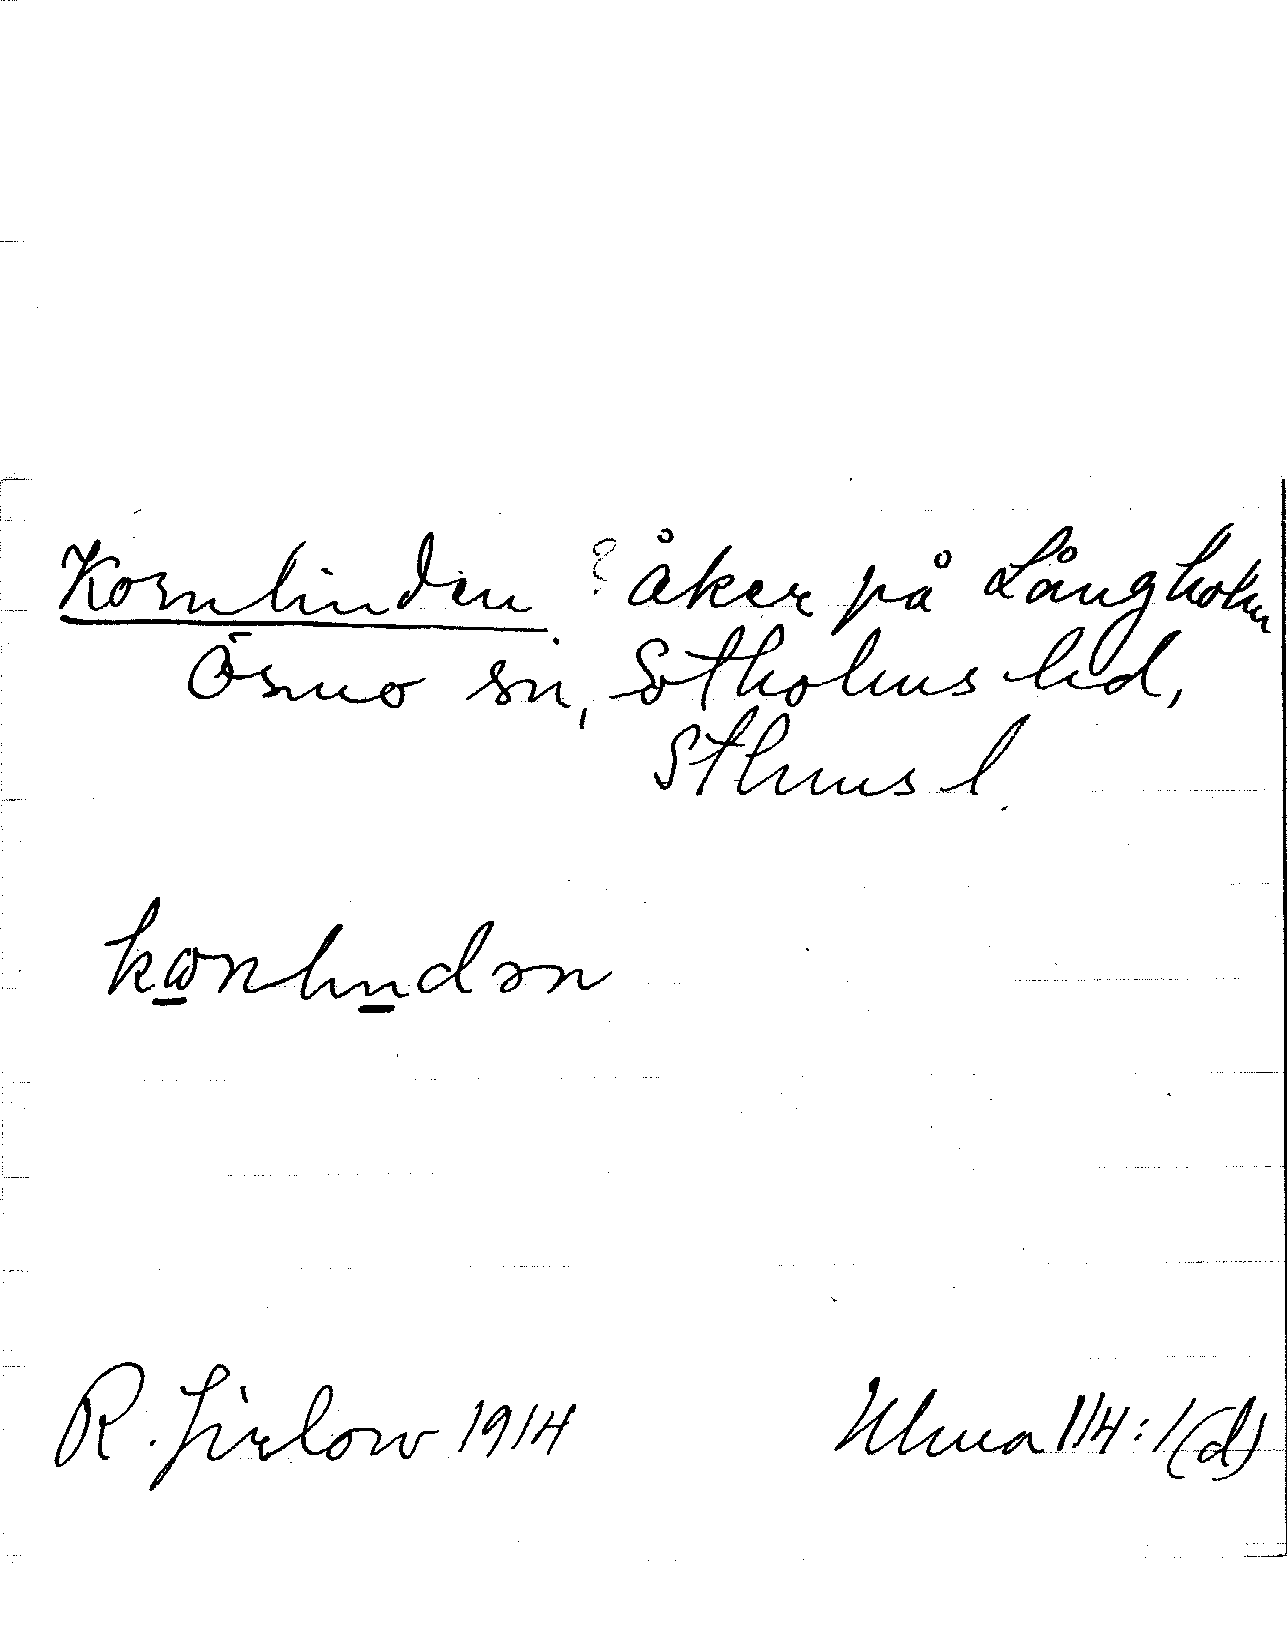 Kornlinden ? åker på Långholm
Ösmo sn, Sotholms hd,
Sthms l
kɷnlindən
R. Jirlow 1914
Ulma 114:1(d)